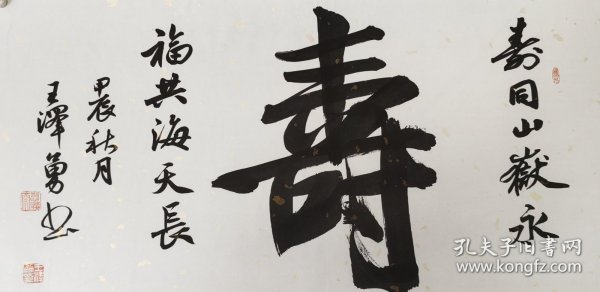 壽同山嶽永
壽
福共海天長
甲辰秋月
王澤勇书
孔夫子旧書网
www.kongfz.com